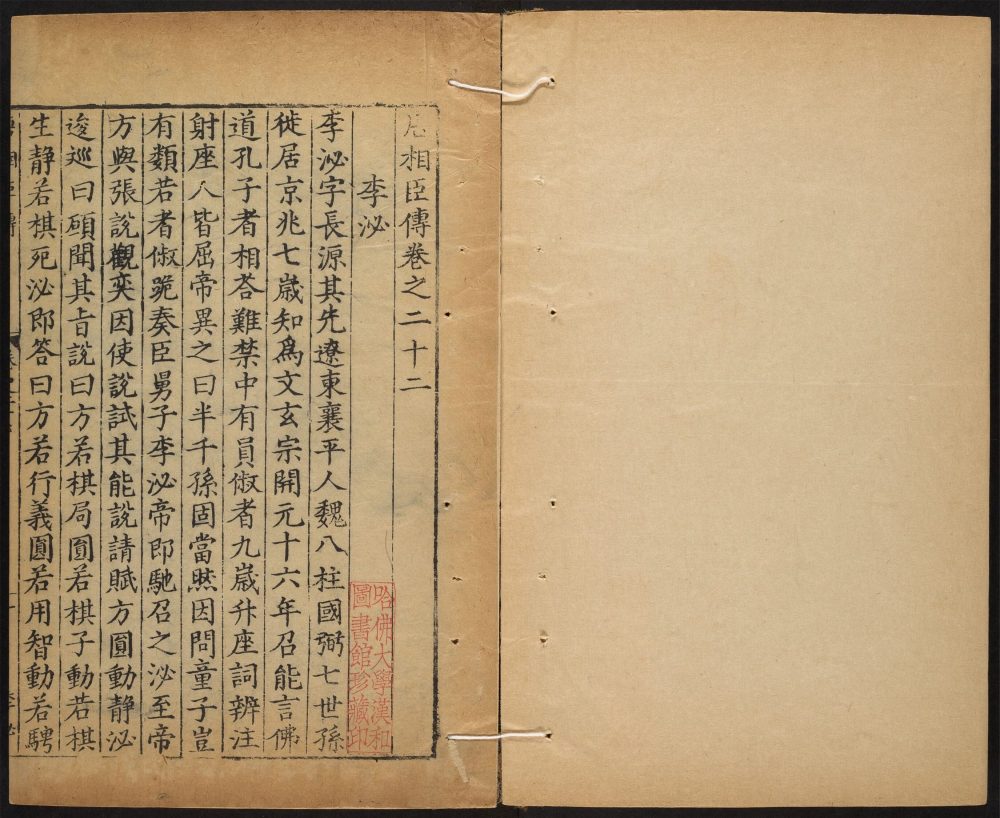 相臣傳卷之二十二
李泌
李泌字長源其先遼東襄平人魏八柱國弼七世孫
徙居京兆七歲知爲文玄宗開元十六年召能言佛
道孔子者相荅難禁中有員俶者九歲升座詞辨注
射座人皆屈帝異之曰半千孫固當然因問童子豈
有類若者俶跪奏臣舅子李泌帝即馳召之泌至帝
方與張說觀奕因使說試其能說請賦方圓動靜泌
逡巡曰願聞其旨說曰方若棋局圓若棋子動若棋
生靜若棋死泌即答曰方若行義圓若用智動若騁
哈佛大學漢和
圖書館珍藏印